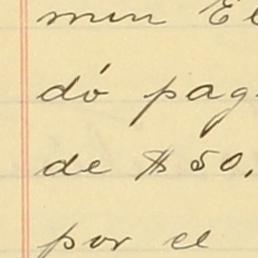 min El
dó pag
de $50.
por el